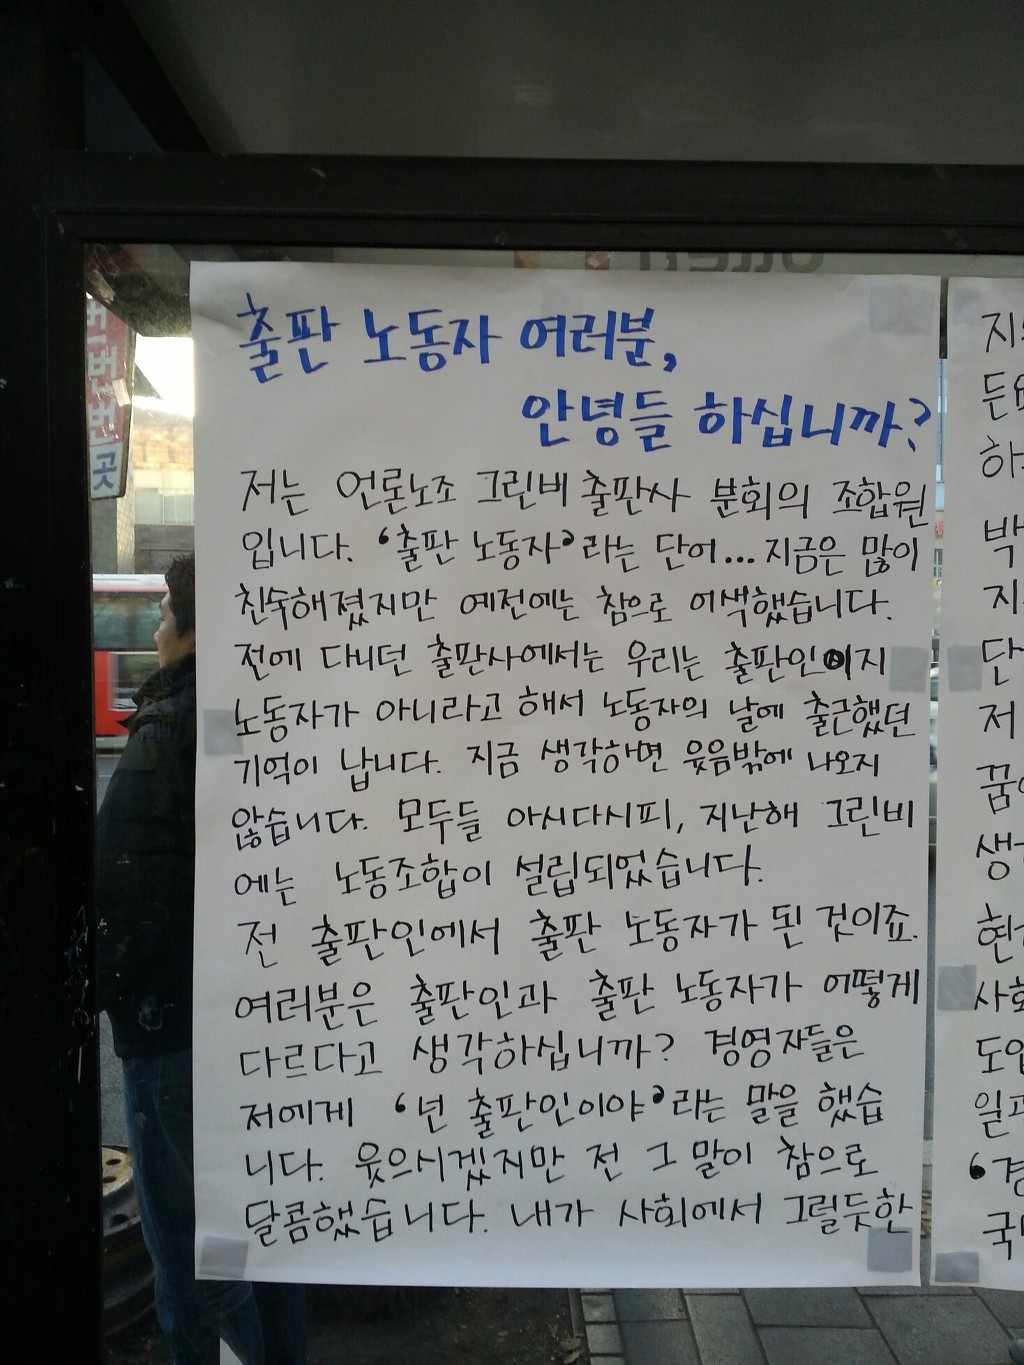 출판 노동자 여러분,
안녕들 하십니까?
저는 언론노조 그린비 출판사 분회의 조합원
입니다. ‘출판 노동자’라는 단어... 지금은 많이
친숙해졌지만 예전에는 참으로 어색했습니다.
전에 다니던 출판사에서는 우리는 출판인이지
노동자가 아니라고 해서 노동자의 날에 출근했던
기억이 납니다. 지금 생각하면 웃음밖에 나오지
않습니다. 모두들 아시다시피, 지난해 그린비
에는 노동조합이 설립되었습니다.
전 출판인에서 출판 노동자가 된 것이죠.
여러분은 출판인과 출판 노동자가 어떻게
다르다고 생각하십니까? 경영자들은
저에게 ‘넌 출판인이야’라는 말을 했습
니다. 웃으시겠지만 전 그 말이 참으로
달콤했습니다. 내가 사회에서 그럴듯한
하
박
지
단
저
꿈
생
현
사회
도입
일
국
번
번
번
곳